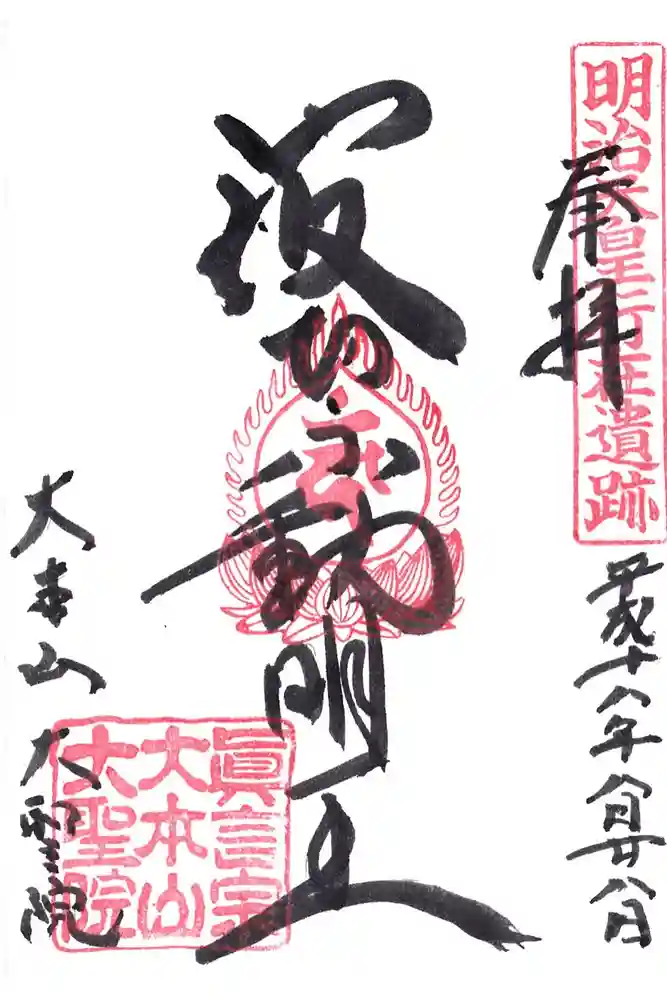 明治天皇行在遺跡
奉拝
平成十八年八月廿八日
波切不動明王
大本山大聖院
眞言宗
大本山
大聖院